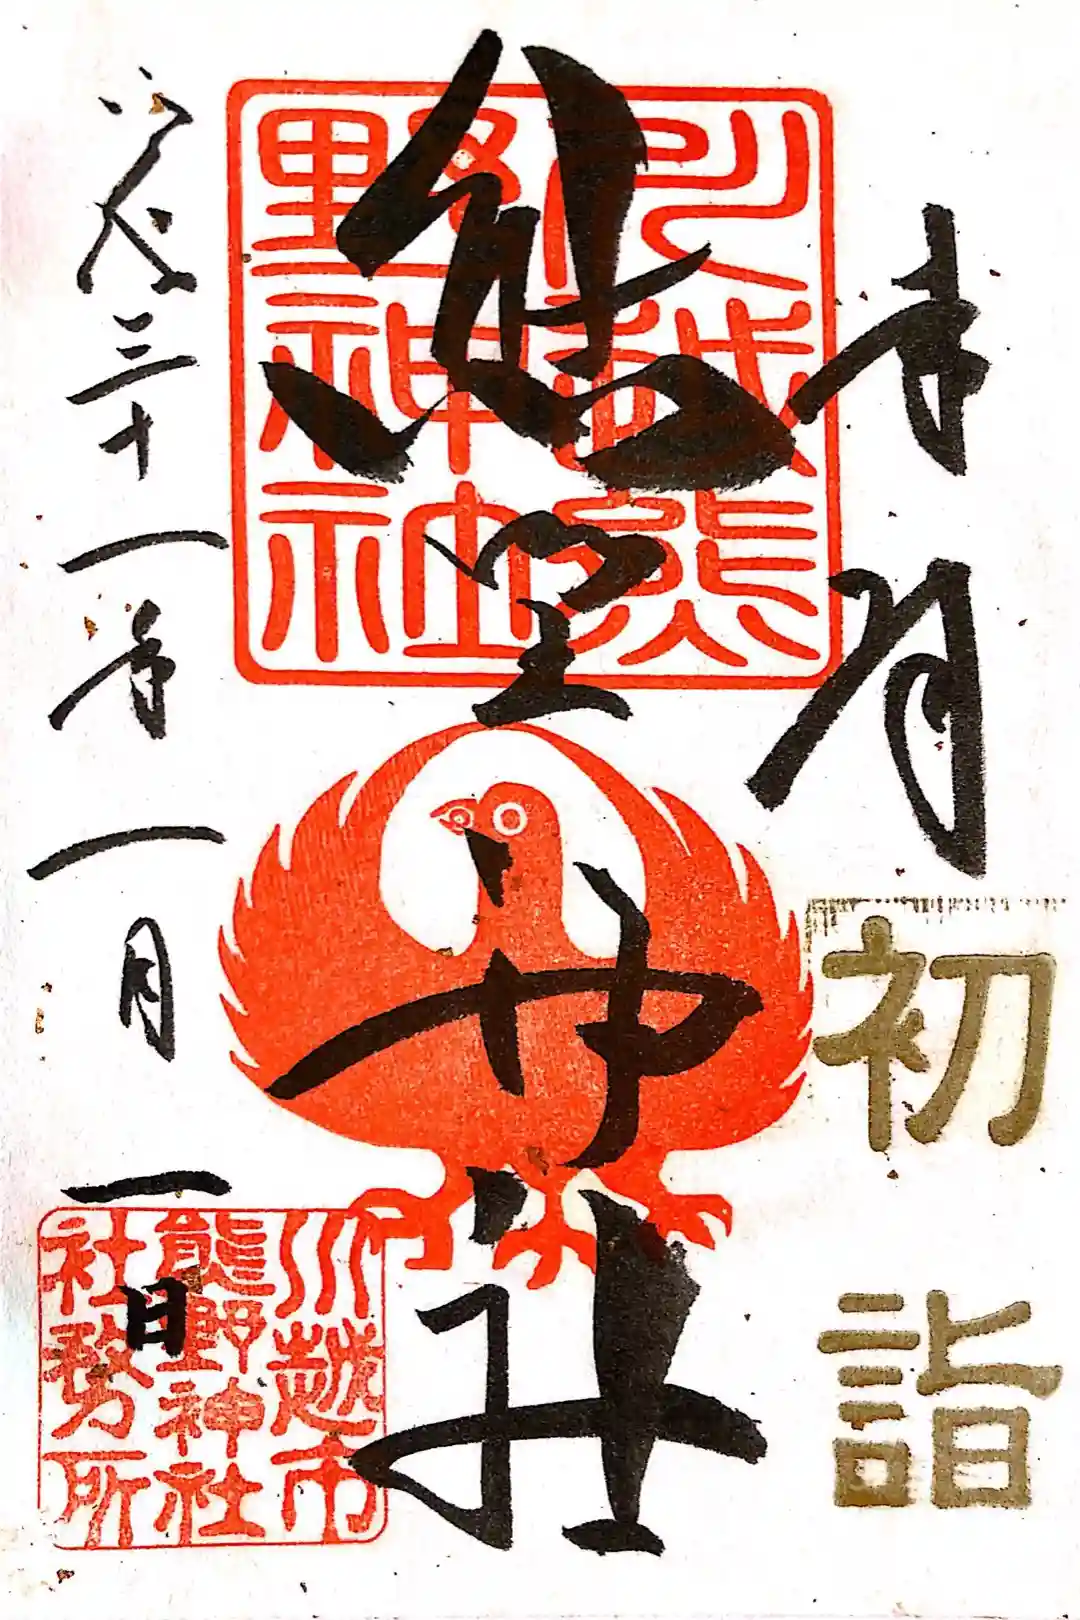 初詣
川越熊
野神社
熊野神社
平成三十一年一月一日
川越市
熊野神社
社務所